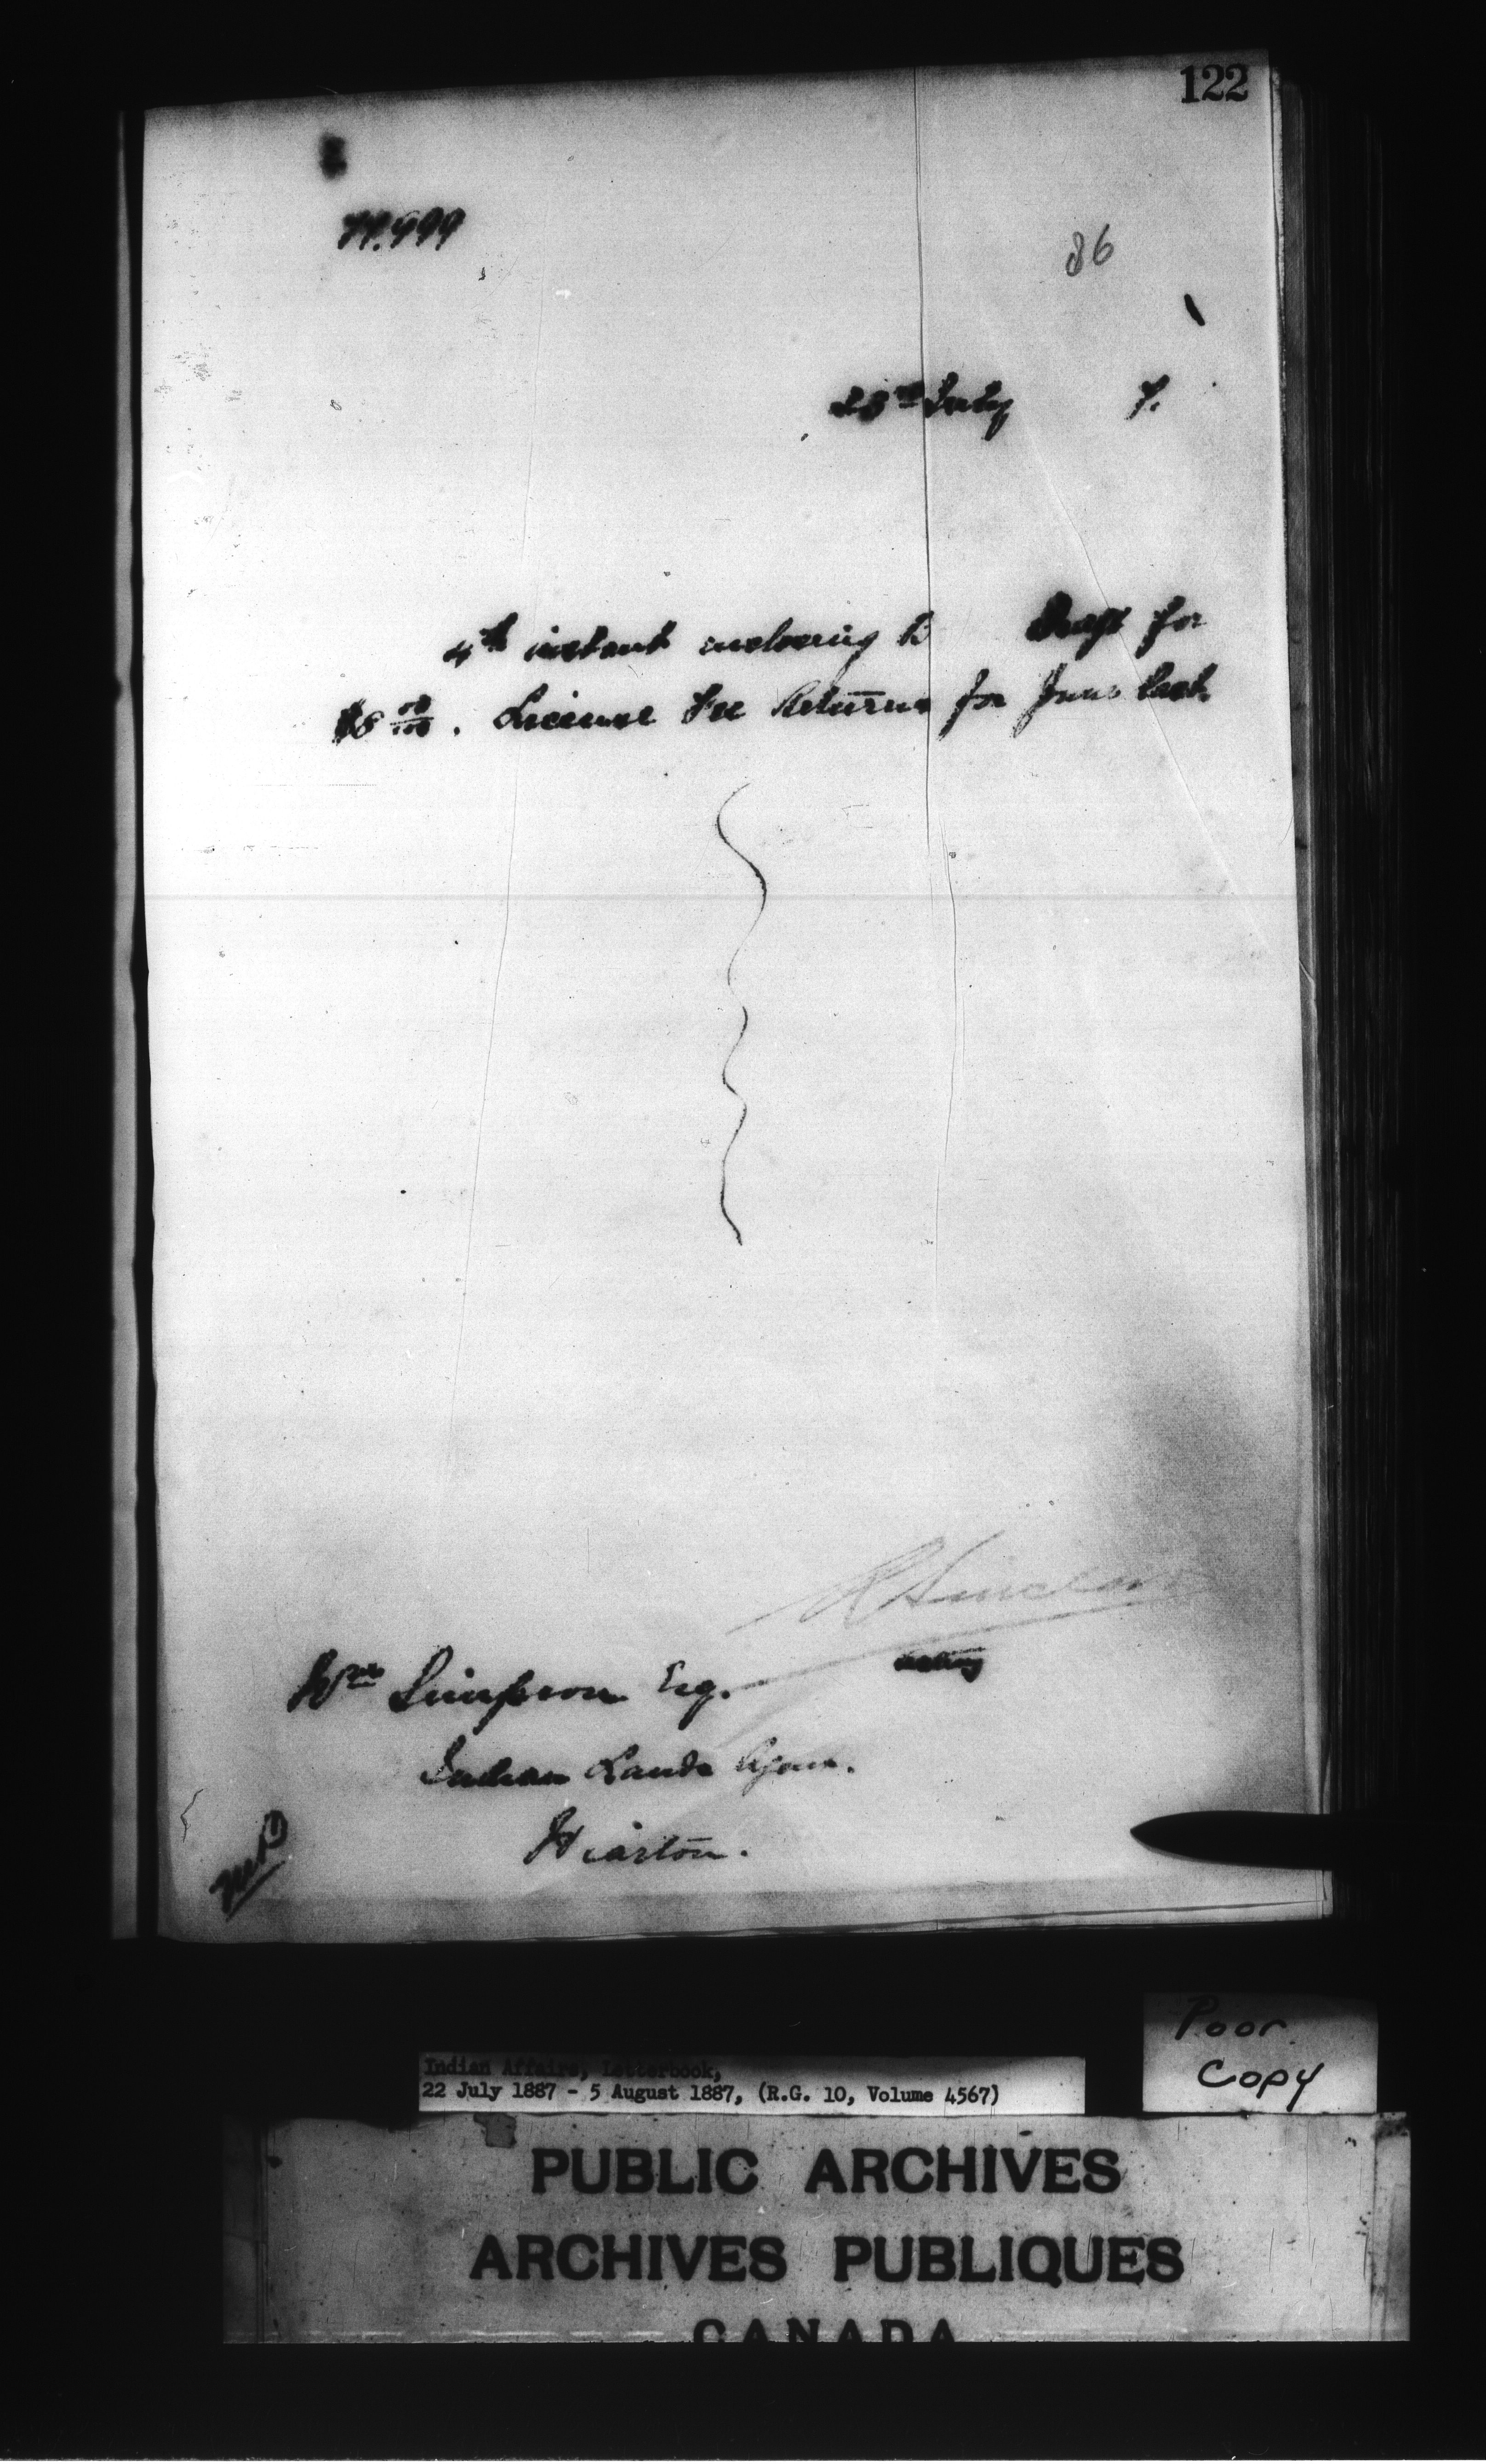 122
77.999
86
23rd July 7.
4th instant enclosing Draft for
$8 00/100. License Fee Returns for June last.
R Sinclair
acting
Wm Simpson Esq.
Indian Lands Agent.
Wiarton.
Poor
Copy
Indian Affairs, Letterbook,
22 July 1887 - 5 August 1887, (R.G. 10, Volume 4567)
PUBLIC ARCHIVES
ARCHIVES PUBLIQUES
CANADA